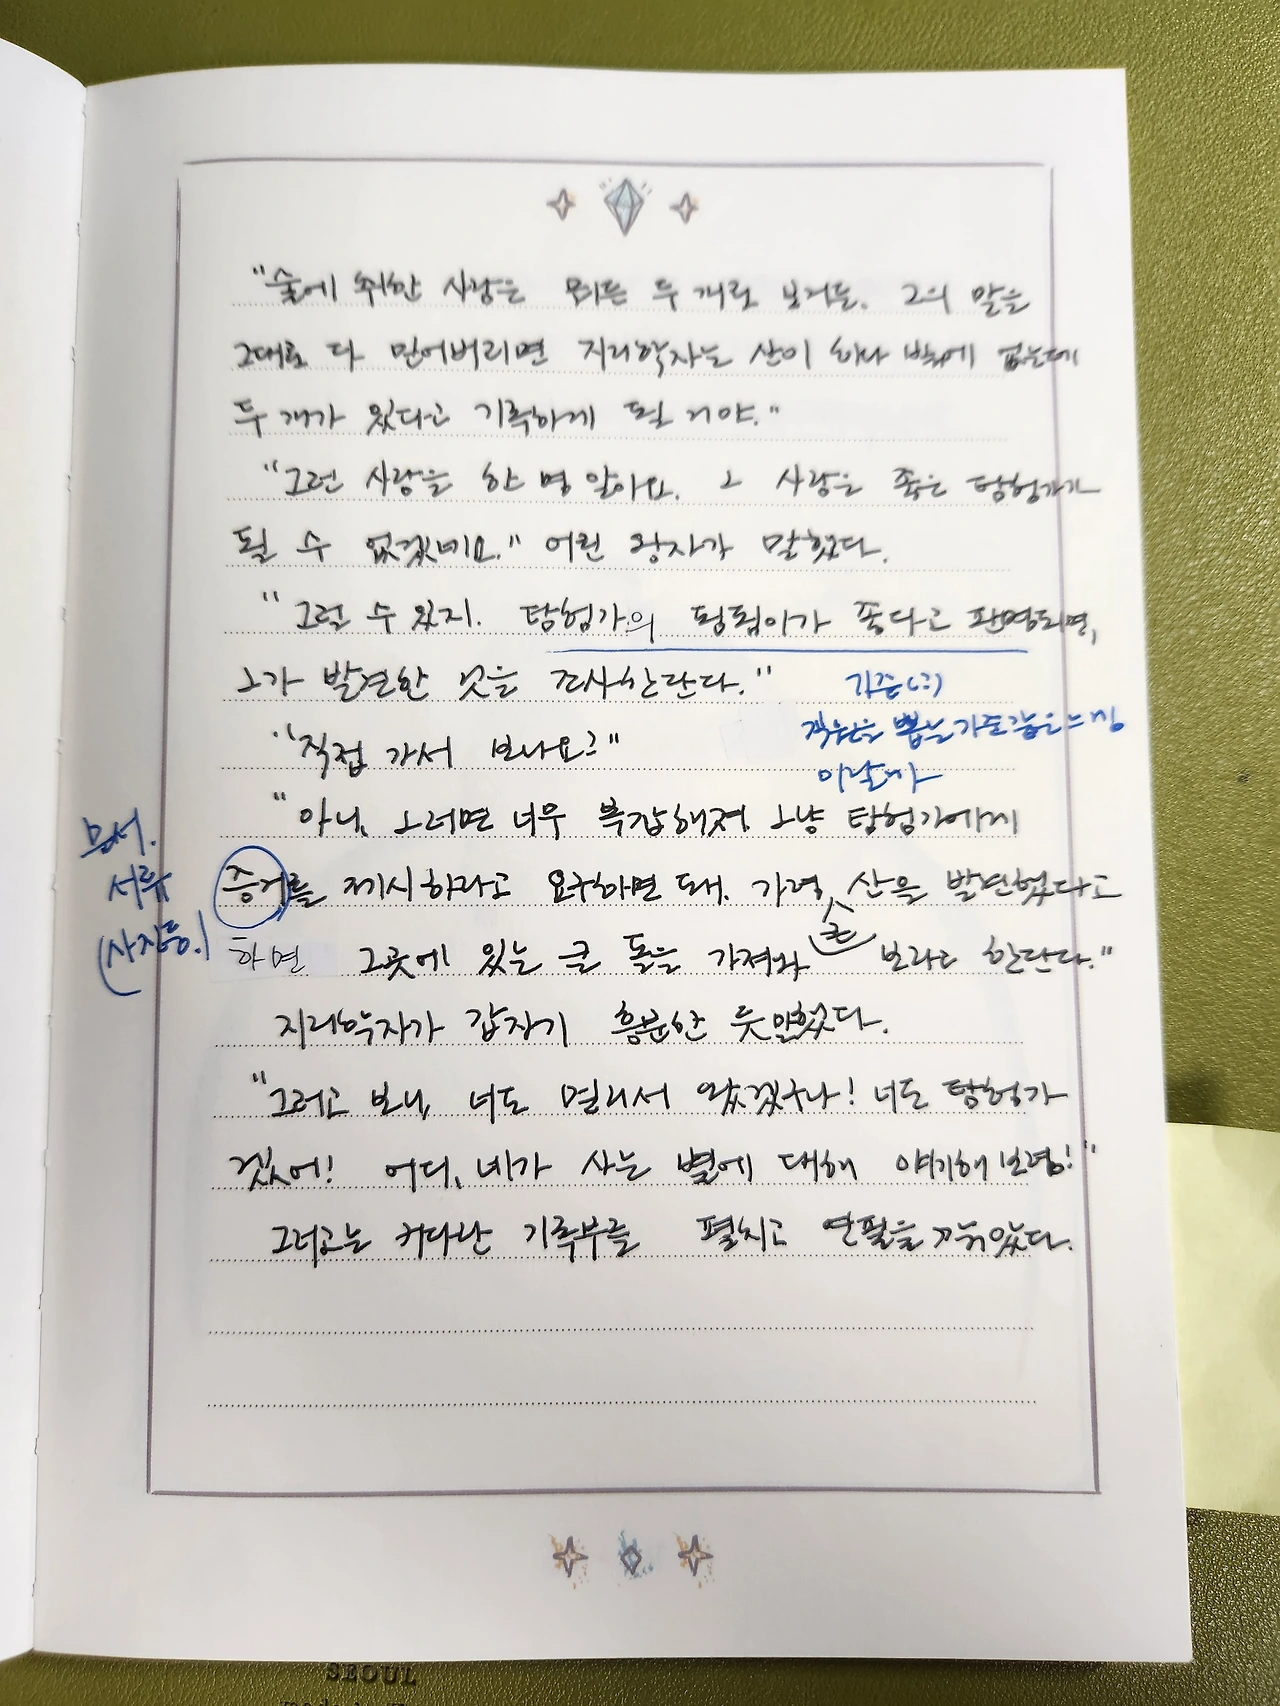 "술에 취한 사람은 뭐든 두 개로 보거든. 그의 말을
그대로 다 믿어버리면 지리학자는 산이 하나 밖에 없는데
두 개가 있다고 기록하게 될 거야."
"그런 사람을 한 명 알아요. 그 사람은 좋은 탐험가가
될 수 없겠네요." 어린 왕자가 말했다.
"그럴 수 있지. 탐험가의 됨됨이가 좋다고 판명되면,
그가 발견한 것을 조사한단다."
기준(?)
"직접 가서 보나요?"
직원을 뽑는 기준같은 느낌
이랄까
"아니, 그러면 너무 복잡해져. 그냥 탐험가에게
문서.
서류
(사진등.)
증거를 제시하라고 요구하면 돼. 가령, 큰 산을 발견했다고
하면 그곳에 있는 큰 돌을 가져와 보라고 한단다."
지리학자가 갑자기 흥분한 듯 말했다.
"그러고 보니, 너도 멀리서 왔겠구나! 너도 탐험가
겠어! 어디, 네가 사는 별에 대해 얘기해 보렴!"
그러고는 커다란 기록부를 펼치고 연필을 깎았다.
SEOUL